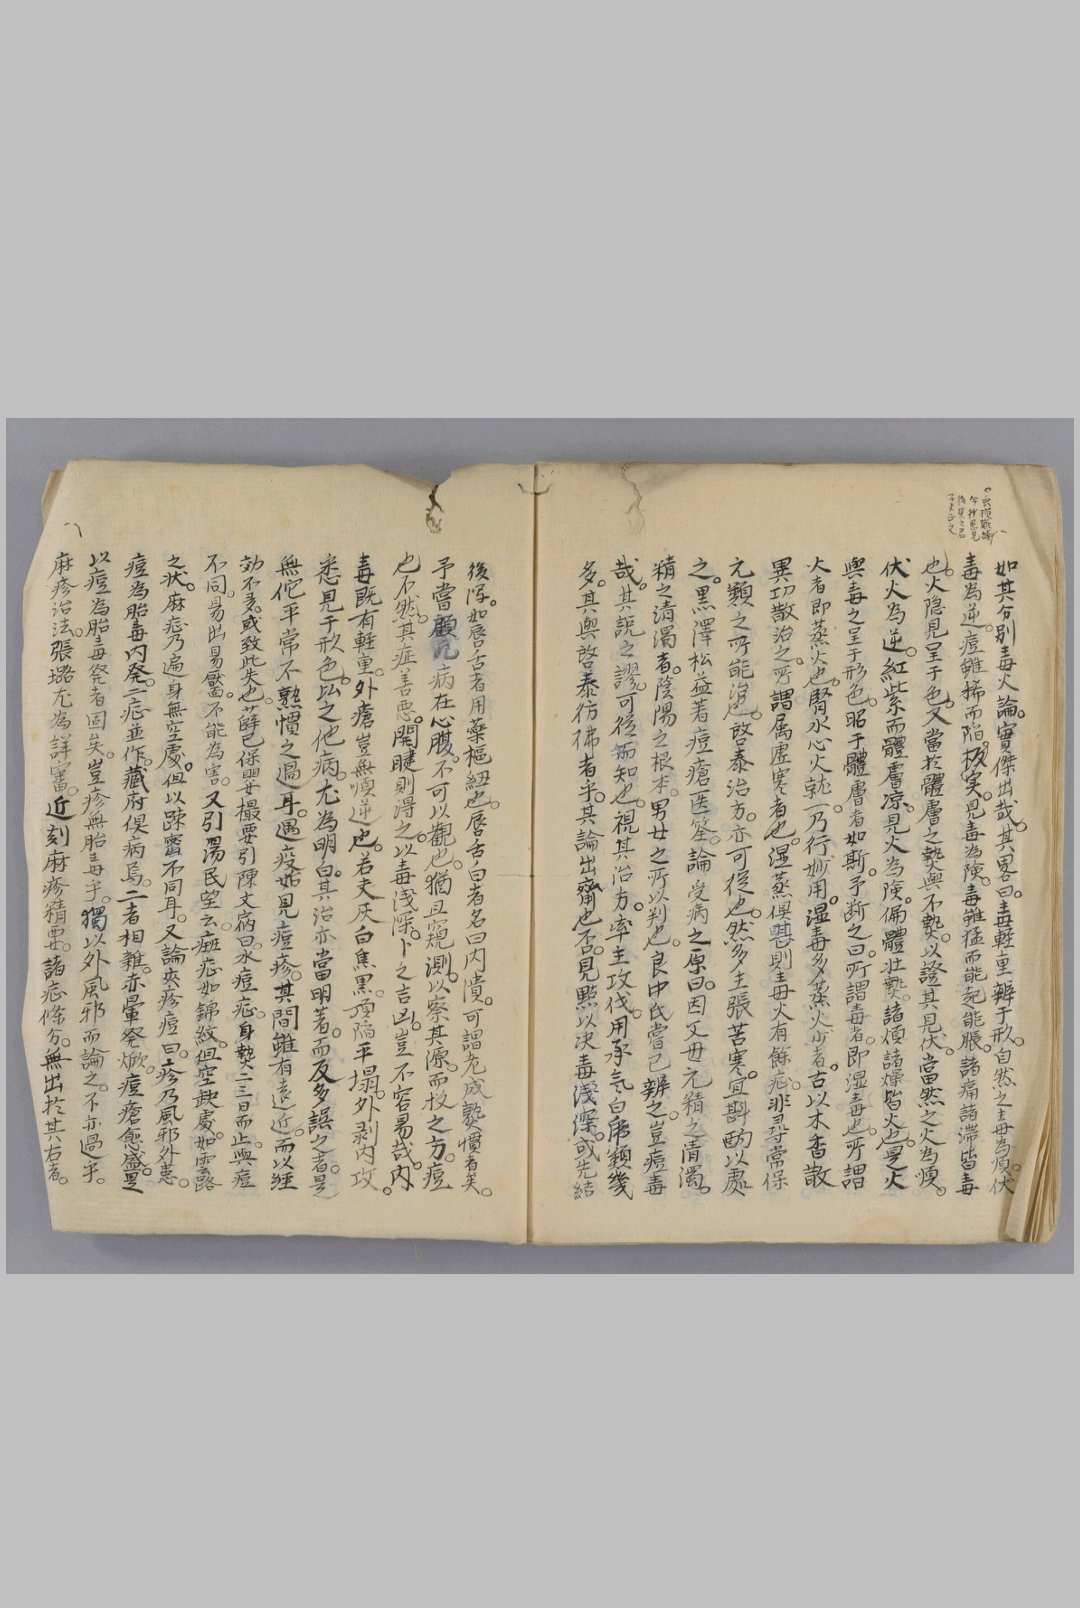 如其分別毒火論。實傑出哉。其畧曰。毒軽重辨于形。自然之毒為順。伏
毒為逆。痘雖稀而陷。板実。見毒為険。毒雖猛而能起能脹。諸痛諸滞皆毒
也。火隐見呈于色。又當於體膚之熱與不熱。以證其見伏。當然之火為順。
伏火為逆。紅紫而體膚凉。見火為険。偏體壮熱。諸煩諸燥皆火也。是火
與毒之呈于形色。昭于體膚者如斯。予断之曰。所謂毒者。即湿毒也。所謂
火者即蒸火也。腎水心火。就一乃行妙用。湿毒多蒸火少者。古以木香散
異功散治之。所謂属虚寒者也。湿蒸俱甚。則毒火有餘。病非尋常保
元類之所能治也。啓泰治方。亦可従也。然多主張苦寒。宜斟酌以處
之。黒澤松益著痘瘡医筌。論受病之原曰。因父母元精之清濁。
精之清濁者。陰陽之根本。男女之所以判也。良中氏嘗已辨之。豈痘毒
哉。其説之謬。可従而知也。視其治方。率主攻伐。用承気白虎類幾
多。其與啓泰彷彿者乎。其論出齊也。否見點以决毒浅深。或先結
後瀉。如唇舌者用藥樞紐也。唇舌曰者名曰内潰。可謂老成熟慣者矣。
予嘗顧凡病在心腹。不可以觀也。猶且窺測。以察其源。而投之方。痘
也不然。其症善悪。関鍵則得之。以毒浅深。卜之吉凶。豈不容易哉。内
毒既有軽重。外瘡豈無順逆也。若夫灰白焦黒。頂陥平塌。外剥内攻
悉見于形色。此之他病。尤為明白。其治亦當明著。而反多誤之者。是
無佗平常不熟慣之過耳。遇疫妬見痘疹。其間雖有遠近。而以経
効不多。或致此失也。薛已保嬰撮要引陳文病曰。水痘症。身熱二三日而止。與痘
不同。易出易靨。不能為害。又引湯民望云。痲症如錦紋。但空缺處。如雲路
之状。麻症乃遍身無空處。但以踈密不同耳。又論夾疹痘曰。疹乃風邪外患。
痘為胎毒内発。二症並作。蔵府俱病焉。二者相雜。赤暈発焮。痘瘡愈盛。是
以痘為胎毒発者固矣。豈疹無胎毒乎。獨以外風邪而論之。不亦過乎。
麻疹治法。張璐尤為詳審。近刻麻疹精要。諸症條分。無出於其右者。